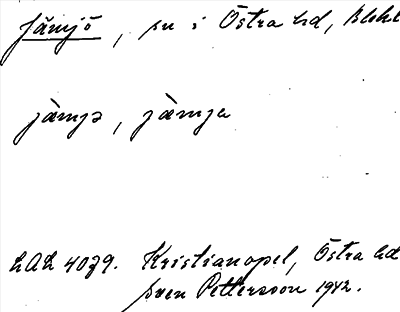 Jämjö, sn i Östra hd, Blek
jämjə, jämja
LAL 4079. Kristianopel, Östra hd
Sven Pettersson 1942.